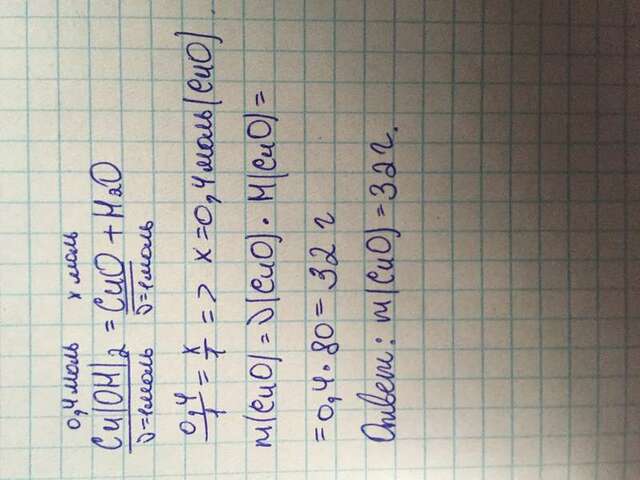 0,4 моль x моль
Cu(OH)2 = CuO + H2O
ν=1моль ν=1моль
0,4/1 = x/1 => x=0,4моль(CuO).
m(CuO) = ν(CuO) · M(CuO) =
=0,4·80= 32 г
Ответ: m(CuO)=32г.